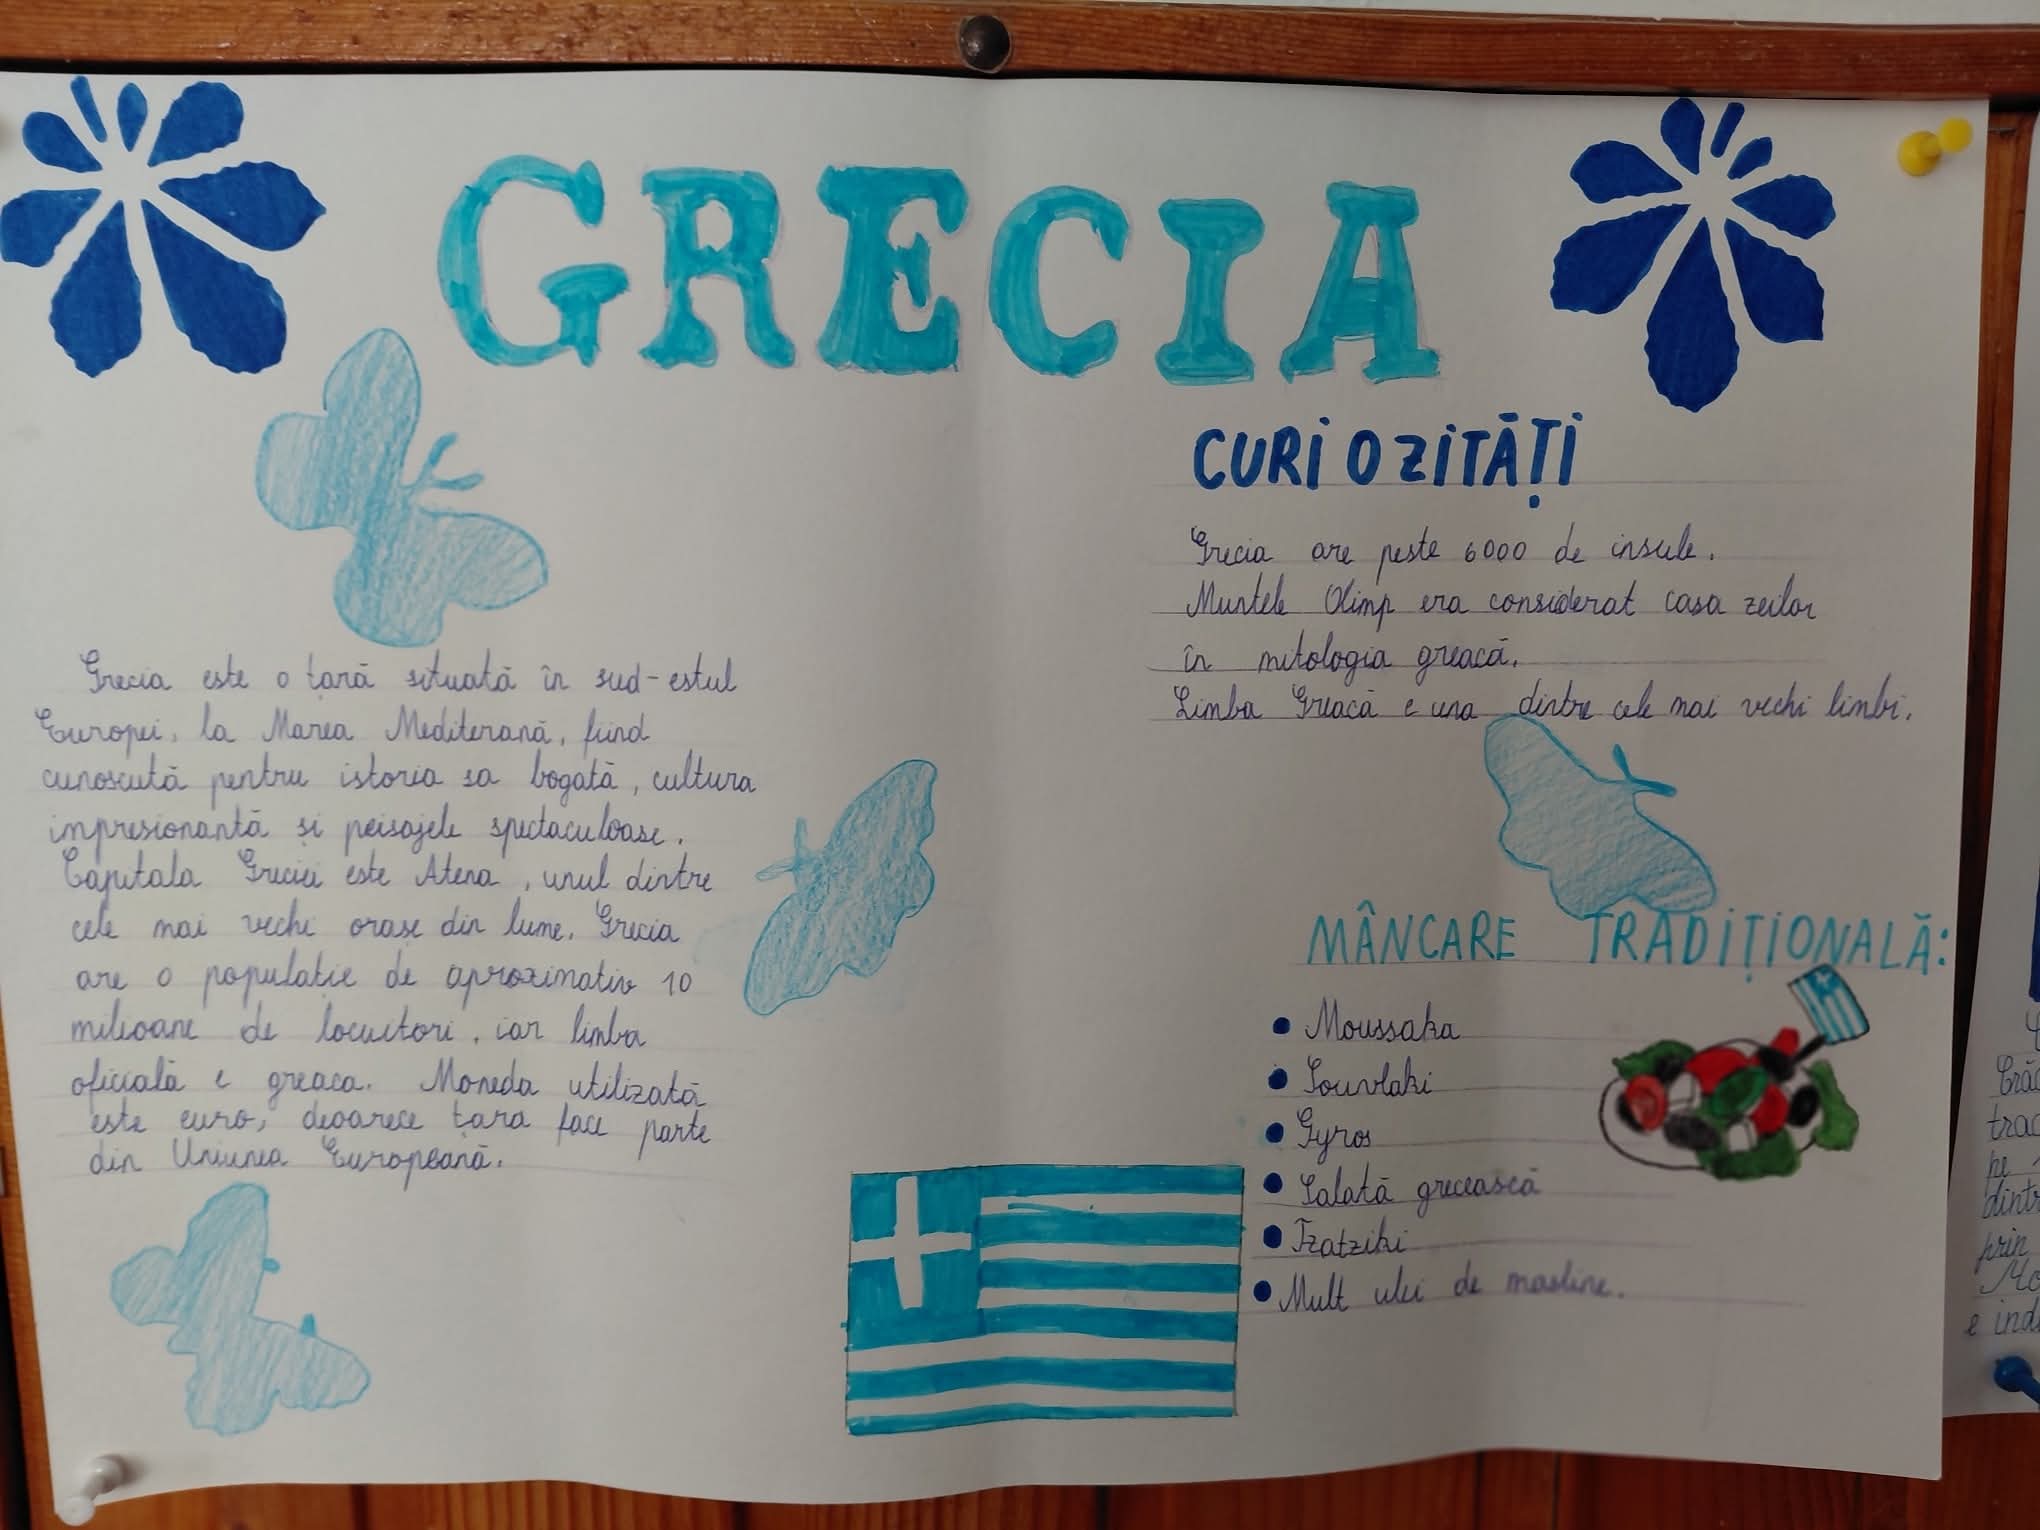 GRECIA
Grecia este o țară situată în sud-estul
Europei, la Marea Mediterană, fiind
cunoscută pentru istoria sa bogată, cultura
impresionantă și peisajele spectaculoase.
Capitala Greciei este Atena, unul dintre
cele mai vechi orașe din lume. Grecia
are o populație de aproximativ 10
milioane de locuitori, iar limba
oficială e greaca. Moneda utilizată
este euro, deoarece țara face parte
din Uniunea Europeană.
CURIOZITĂȚI
Grecia are peste 6000 de insule.
Muntele Olimp era considerat casa zeilor
în mitologia greacă.
Limba Greacă e una dintre cele mai vechi limbi.
MÂNCARE TRADIȚIONALĂ:
• Moussaka
• Souvlaki
• Gyros
• Salată grecească
• Tzatziki
• Mult ulei de masline.
trad
pe
dintr
prin
Mo
e ind